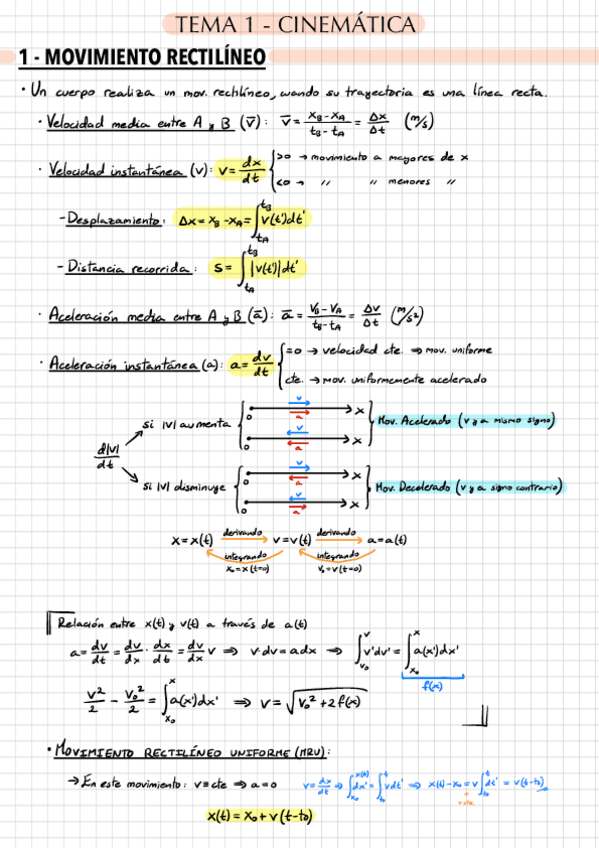 TEMA 1 - CINEMÁTICA
1 - MOVIMIENTO RECTILÍNEO
· Un cuerpo realiza un mov. rectilíneo, cuando su trayectoria es una línea recta.
· Velocidad media entre A y B (v̄): v̄ = (x_B - x_A)/(t_B - t_A) = Δx/Δt (m/s)
· Velocidad instantánea (v): v = dx/dt { >0 → movimiento a mayores de x
<0 → " " menores "
- Desplazamiento: Δx = x_B - x_A = ∫_{t_A}^{t_B} v(t')dt'
- Distancia recorrida: s = ∫_{t_A}^{t_B} |v(t')|dt'
· Aceleración media entre A y B (ā): ā = (v_B - v_A)/(t_B - t_A) = Δv/Δt (m/s²)
· Aceleración instantánea (a): a = dv/dt { =0 → velocidad cte. ⇒ mov. uniforme
cte. → mov. uniformemente acelerado
d|v|/dt
si |v| aumenta
v
a
0 x
v
a
0 x
Mov. Acelerado (v y a mismo signo)
si |v| disminuye
v
a
0 x
v
a
0 x
Mov. Decelerado (v y a signo contrario)
derivando derivando
x = x(t) v = v(t) a = a(t)
integrando integrando
x₀ = x(t=0) v₀ = v(t=0)
Relación entre x(t) y v(t) a través de a(t)
a = dv/dt = dv/dx · dx/dt = dv/dx v ⇒ v·dv = a dx ⇒ ∫_{v₀}^{v} v'dv' = ∫_{x₀}^{x} a(x')dx'
f(x)
v²/2 - v₀²/2 = ∫_{x₀}^{x} a(x')dx' ⇒ v = √(v₀² + 2f(x))
· MOVIMIENTO RECTILÍNEO UNIFORME (MRU):
→ En este movimiento: v ≡ cte ⇒ a = 0 v = dx/dt ⇒ ∫_{x₀}^{x(t)} dx' = ∫_{t₀}^{t} vdt' ⇒ x(t) - x₀ = v ∫_{t₀}^{t} dt' = v(t-t₀)
v cte.
x(t) = x₀ + v(t-t₀)